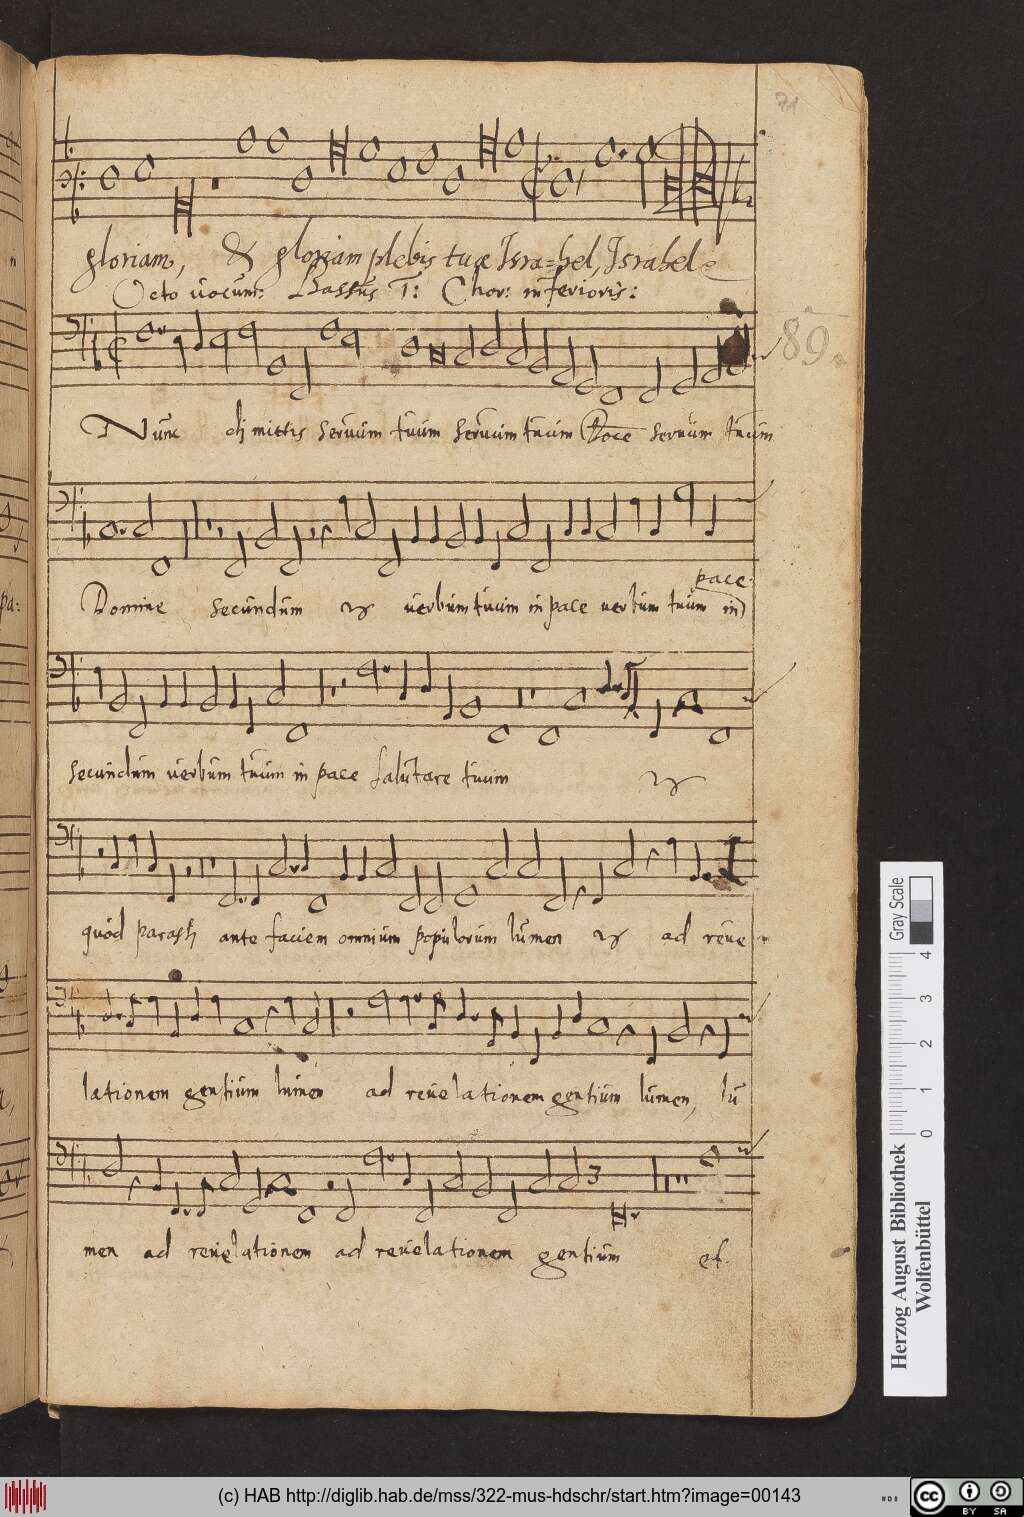 71
gloriam, & gloriam plebis tuæ Isra=hel, Israhel
Octo vocum: Bassus I: Chor: inferioris:
89.
Nunc dimittis servum tuum servum tuum Doce servum tuum
pace.
Domine secundum verbum tuum in pace verbum tuum in
secundum verbum tuum in pace salutare tuum
quod parasti ante faciem omnium populorum lumen ad reve
lationem gentium lumen ad revelationem gentium lumen, lu
men ad revelationem ad revelationem gentium et
Gray Scale
0 1 2 3 4
Herzog August Bibliothek
Wolfenbüttel
(c) HAB http://diglib.hab.de/mss/322-mus-hdschr/start.htm?image=00143
cc BY SA